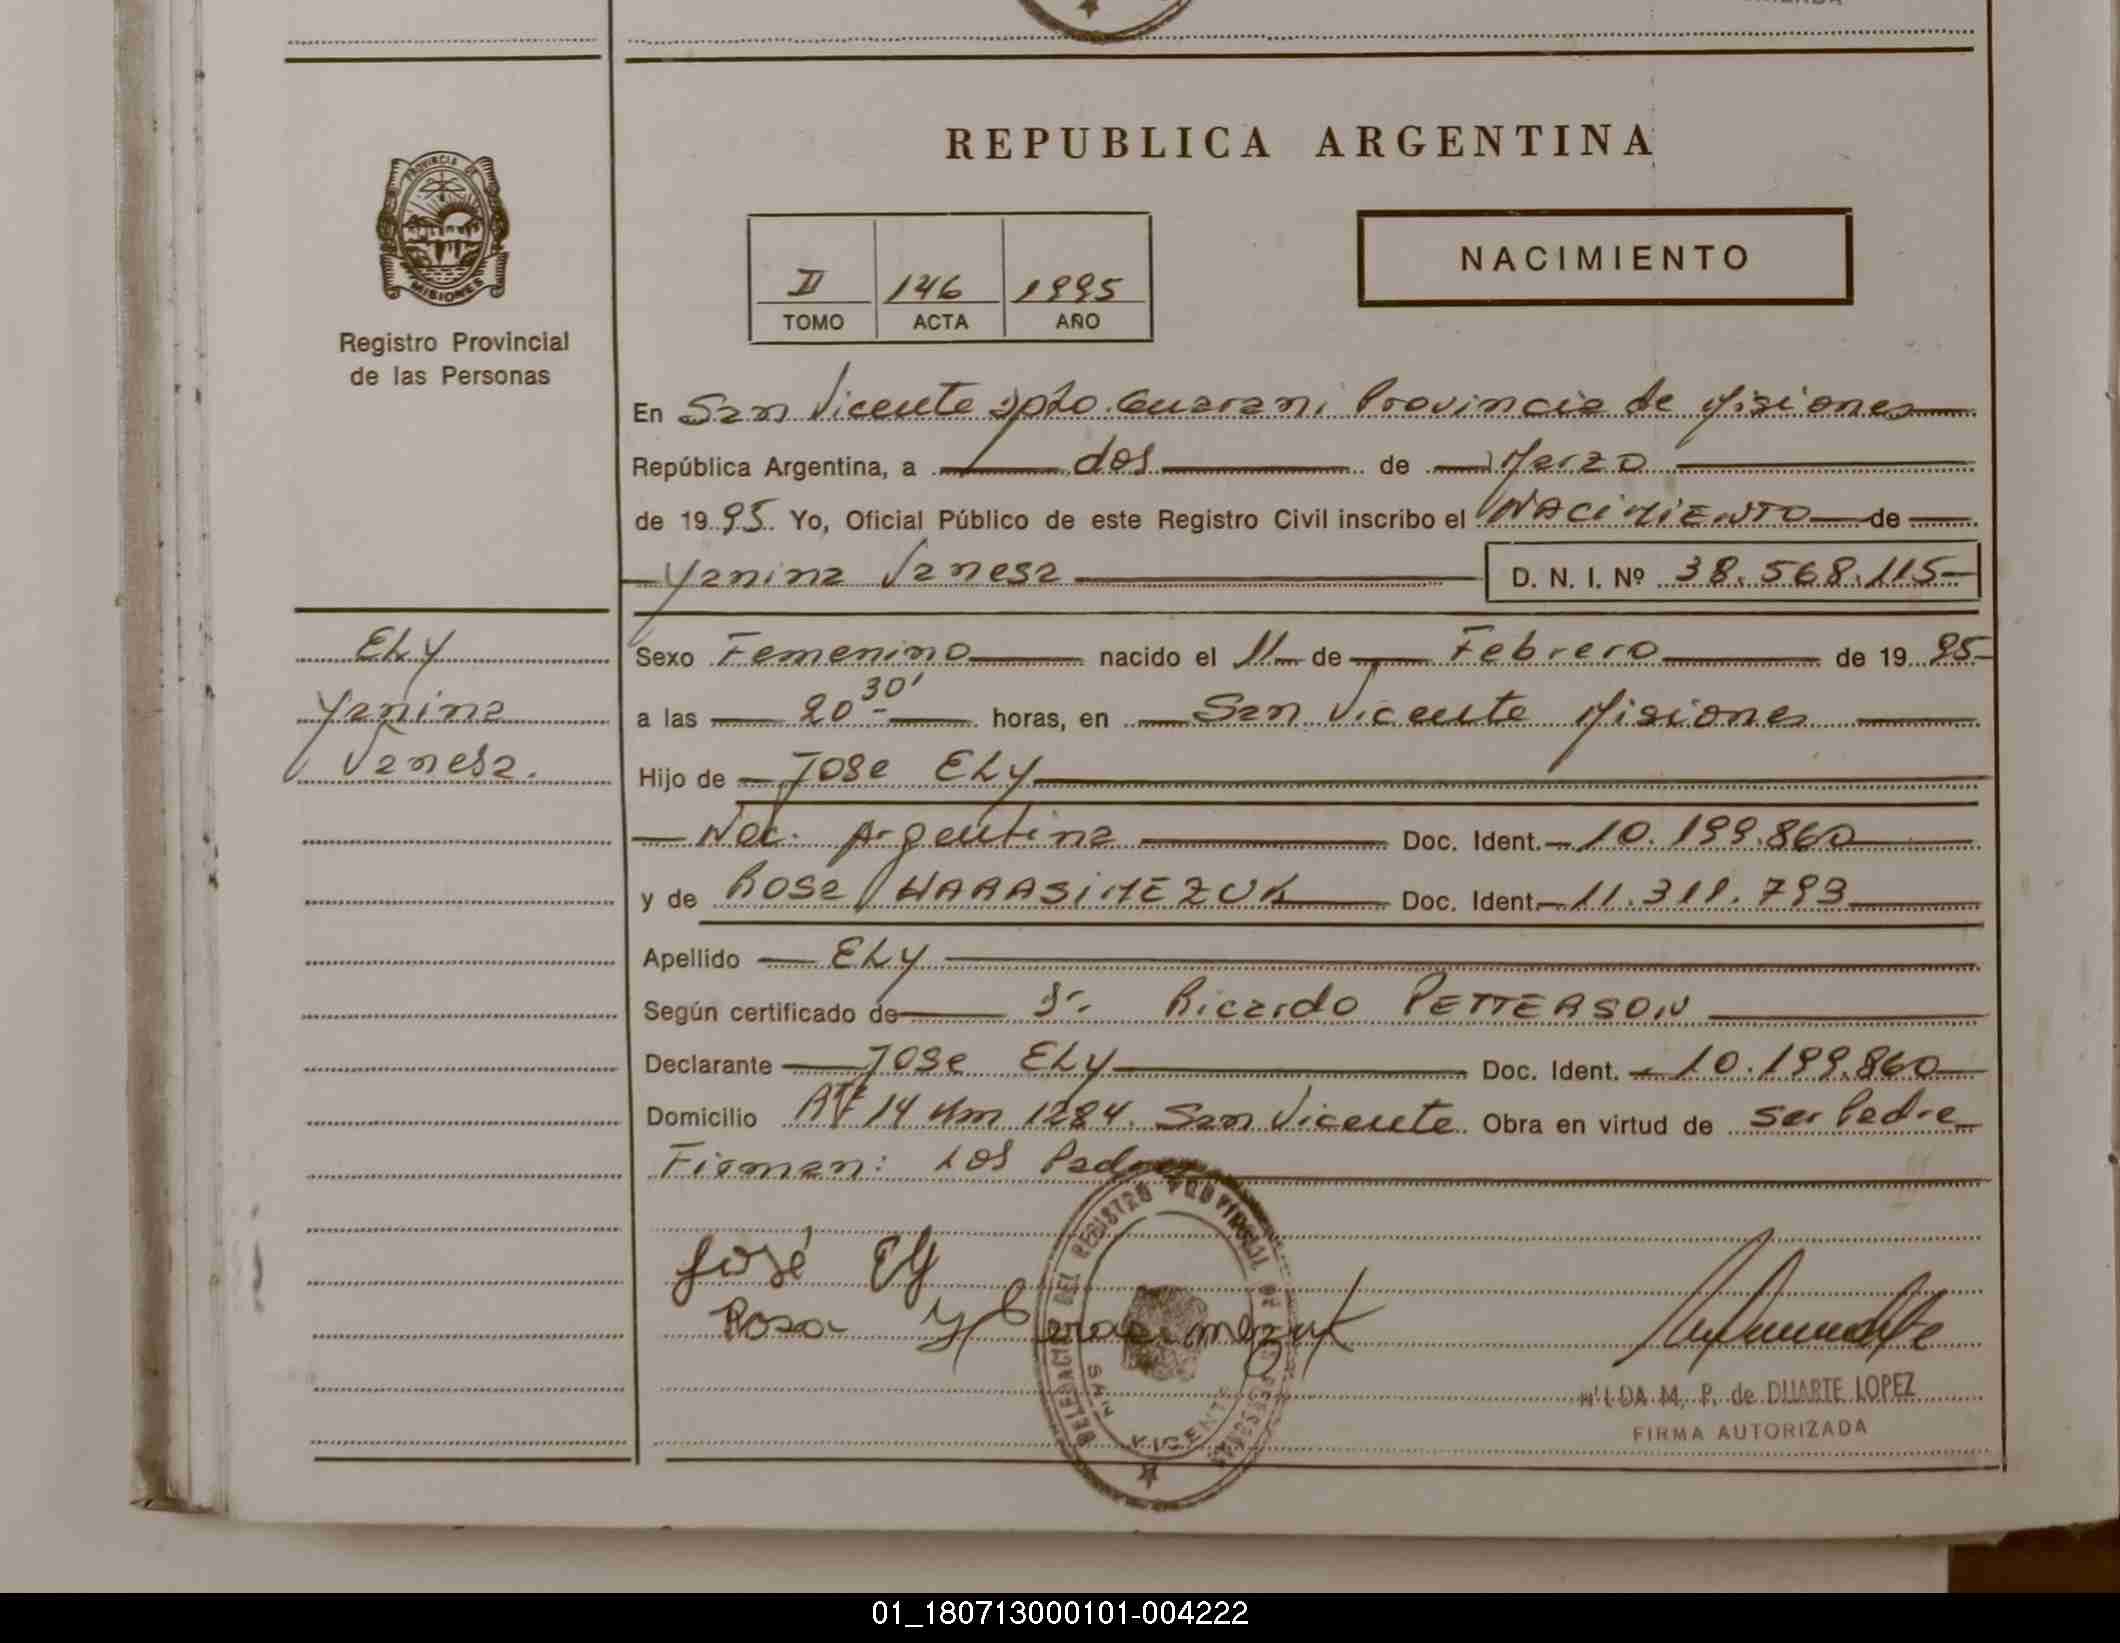 REPUBLICA ARGENTINA
PROVINCIA DE
MISIONES
Registro Provincial
de las Personas
NACIMIENTO
II 146 1995
TOMO ACTA AÑO
En San Vicente Dpto. Guarani Provincia de Misiones
República Argentina, a dos de Marzo
de 1995 Yo, Oficial Público de este Registro Civil inscribo el NACIMIENTO de
Yanina Vanesa D. N. I. Nº 38.568.115
Ely
Yanina
Vanesa.
Sexo Femenino nacido el 11 de Febrero de 1995
a las 20 30' horas, en San Vicente Misiones
Hijo de Jose Ely
Nac. Argentina Doc. Ident. 10.199.860
y de Rosa HARASIMEZUK Doc. Ident. 11.311.793
Apellido Ely
Según certificado de Dr. Ricardo PETTERSON
Declarante Jose Ely Doc. Ident. 10.199.860
Domicilio 14 Km 1284. San Vicente Obra en virtud de ser Padre
Firman: Los Padres
José Ely
Rosa Harasimezuk
DELEGACION DEL REGISTRO PROVINCIAL DE LAS PERSONAS
SAN VICENTE
M. P. de DUARTE LOPEZ
FIRMA AUTORIZADA
01_180713000101-004222